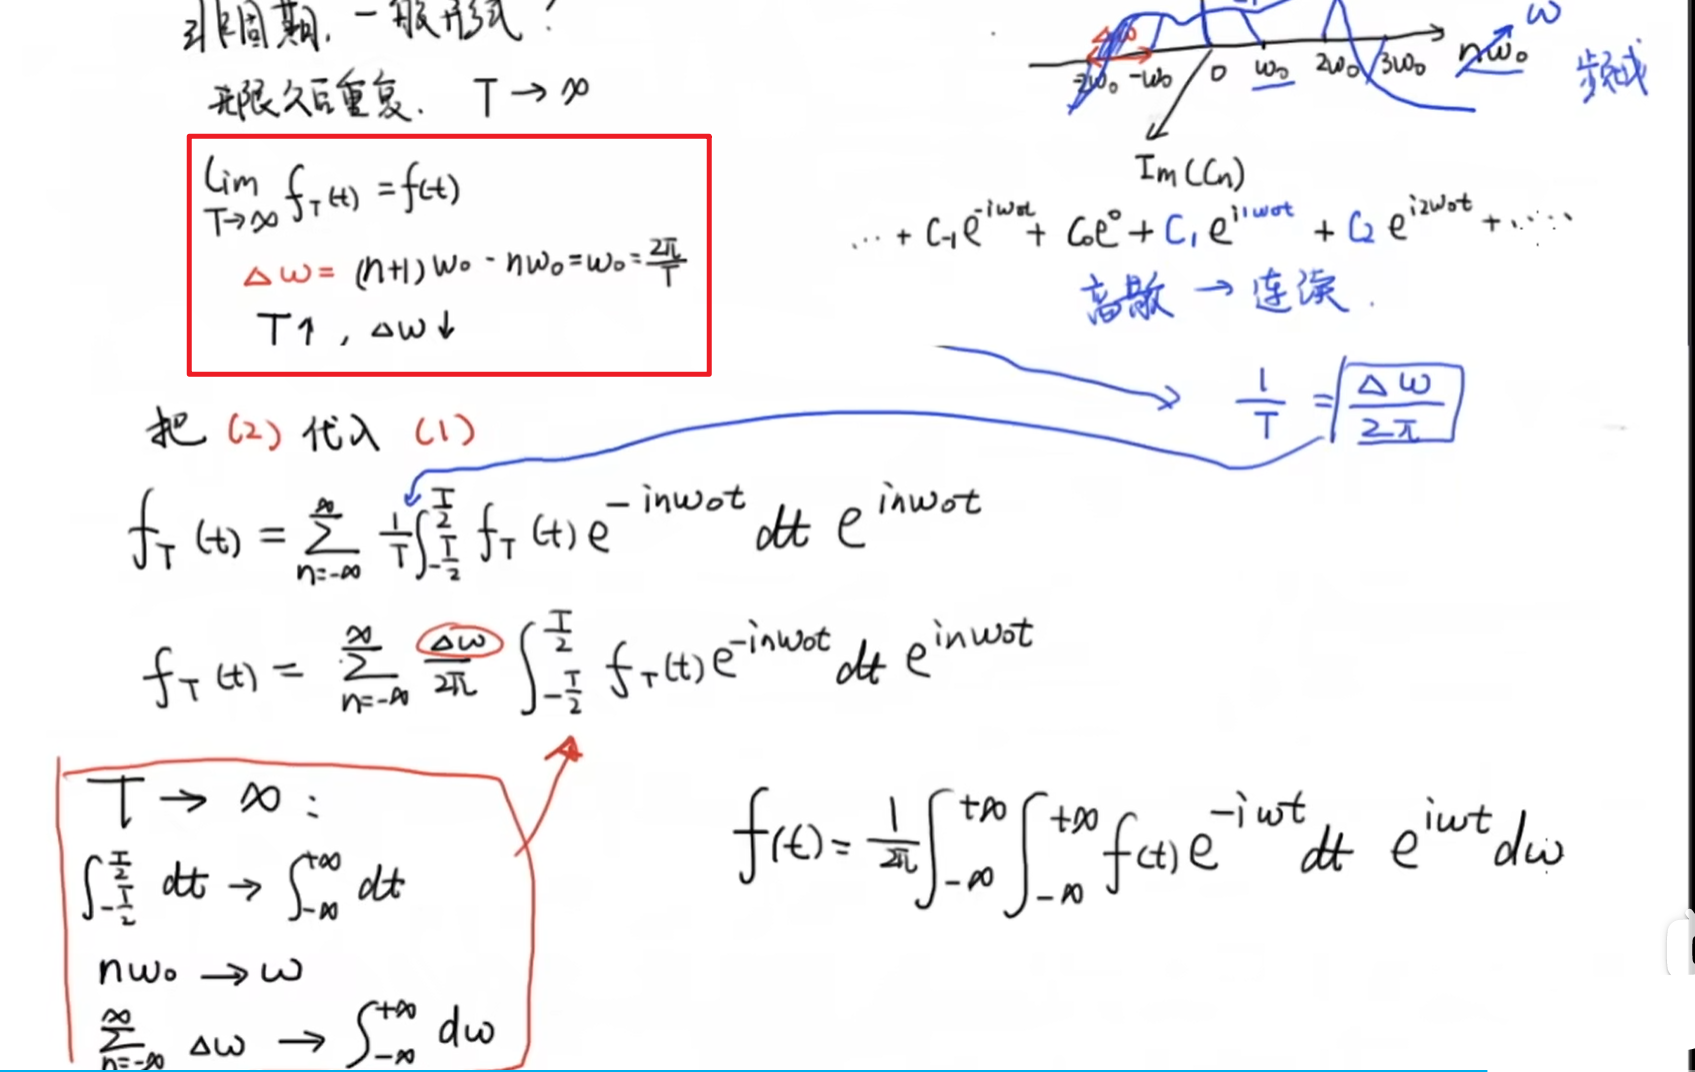 非周期, 一般形式:
无限久后重复. T → ∞
lim T→∞ f_T(t) = f(t)
Δω = (n+1)ω₀ - nω₀ = ω₀ = 2π/T
T↑, Δω↓
Δω
-2ω₀ -ω₀ 0 ω₀ 2ω₀ 3ω₀ nω₀ ω
频域
Im(Cn)
… + C₋₁e^{-iω₀t} + C₀e⁰ + C₁e^{i1ω₀t} + C₂e^{i2ω₀t} + ……
离散 → 连续.
1/T = Δω/2π
把 (2) 代入 (1)
f_T(t) = ∑_{n=-∞}^{∞} 1/T ∫_{-T/2}^{T/2} f_T(t) e^{-inω₀t} dt e^{inω₀t}
f_T(t) = ∑_{n=-∞}^{∞} Δω/2π ∫_{-T/2}^{T/2} f_T(t) e^{-inω₀t} dt e^{inω₀t}
T → ∞ :
∫_{-T/2}^{T/2} dt → ∫_{-∞}^{+∞} dt
nω₀ → ω
∑_{n=-∞}^{∞} Δω → ∫_{-∞}^{+∞} dω
f(t) = 1/2π ∫_{-∞}^{+∞} ∫_{-∞}^{+∞} f(t) e^{-iωt} dt e^{iωt} dω